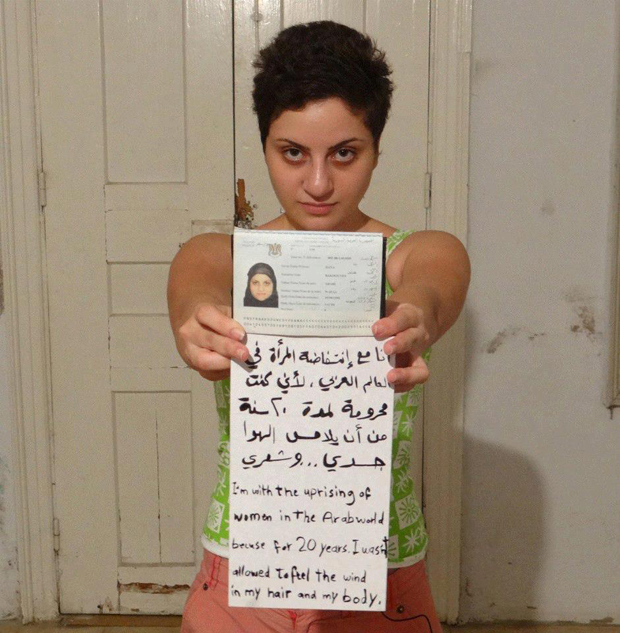 أنا مع إنتفاضة المرأة في
العالم العربي، لأني كنت
محرومة لمدة ٢٠ سنة
من أن يلامس الهوا
جسدي...وشعري
I'm with the uprising of
women in the Arab world
becuse for 20 years. I wasn't
allowed to feel the wind
in my hair and my body.